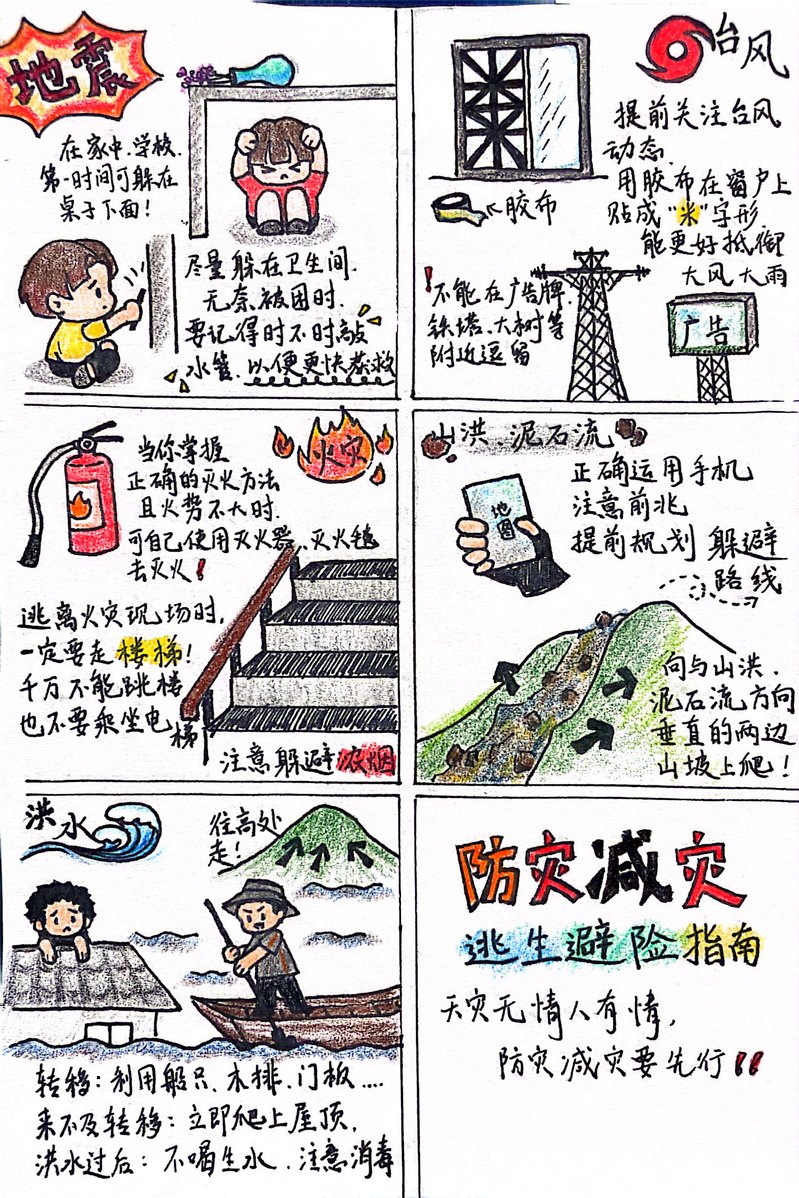 地震
在家中.学校.
第一时间可躲在
桌子下面!
尽量躲在卫生间.
无奈被困时.
要记得时不时敲
水管.以便更快恭救
台风
提前关注台风
动态.
用胶布在窗户上
贴成"米"字形
能更好抵御
大风大雨
胶布
!不能在广告牌.
铁塔.大树等
附近逗留
广告
火灾
当你掌握
正确的灭火方法
且火势不大时.
可自己使用灭火器、灭火毯
去灭火!
逃离火灾现场时,
一定要走楼梯!
千万不能跳楼
也不要乘坐电梯
注意躲避浓烟
山洪.泥石流
地图
正确运用手机
注意前兆
提前规划 躲避
路线
向与山洪.
泥石流方向
垂直的两边
山坡上爬!
洪水
往高处
走!
转移:利用船只.木排.门板....
来不及转移:立即爬上屋顶.
洪水过后:不喝生水.注意消毒
防灾减灾
逃生避险指南
天灾无情人有情,
防灾减灾要先行!!